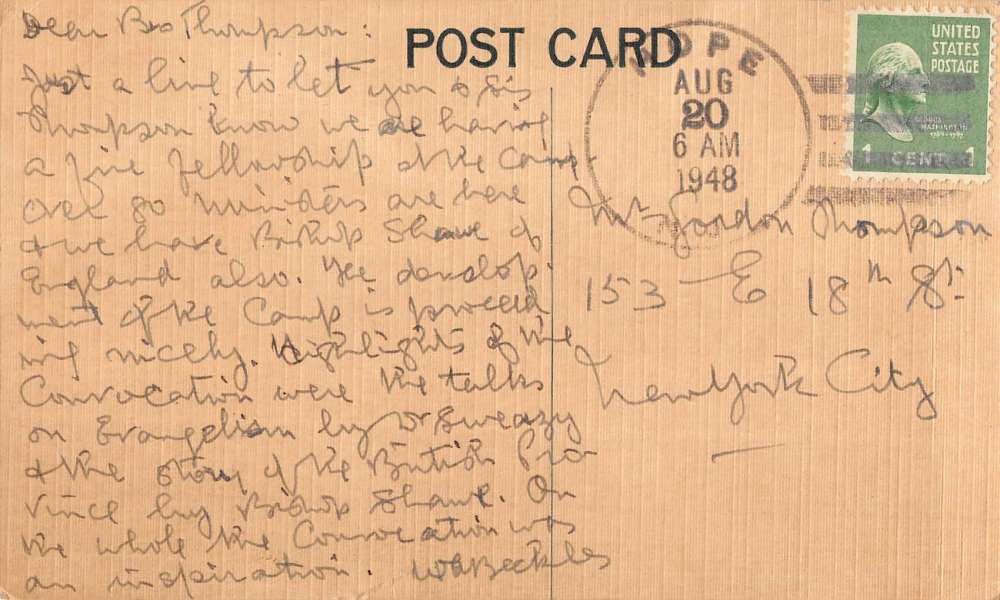 POST CARD
HOPE
AUG
20
6 AM
1948
UNITED
STATES
POSTAGE
GEORGE
WASHINGTON
1 CENT 1
Dear Bro Thompson:
Just a line to let you & Sis
Thompson know we are having
a fine fellowship at the Camp.
Over 80 ministers are here
& we have Bishop Shawe of
England also. The develop-
ment of the Camp is proceed
ing nicely. Highlights of the
Convocation were the talks
on Evangelism by Dr Sweazy
& the story of the British Pro
vince by Bishop Shawe. On
the whole the Convocation was
an inspiration. Beckles
Mr Gordon Thompson
153 E 18th St.
New York City